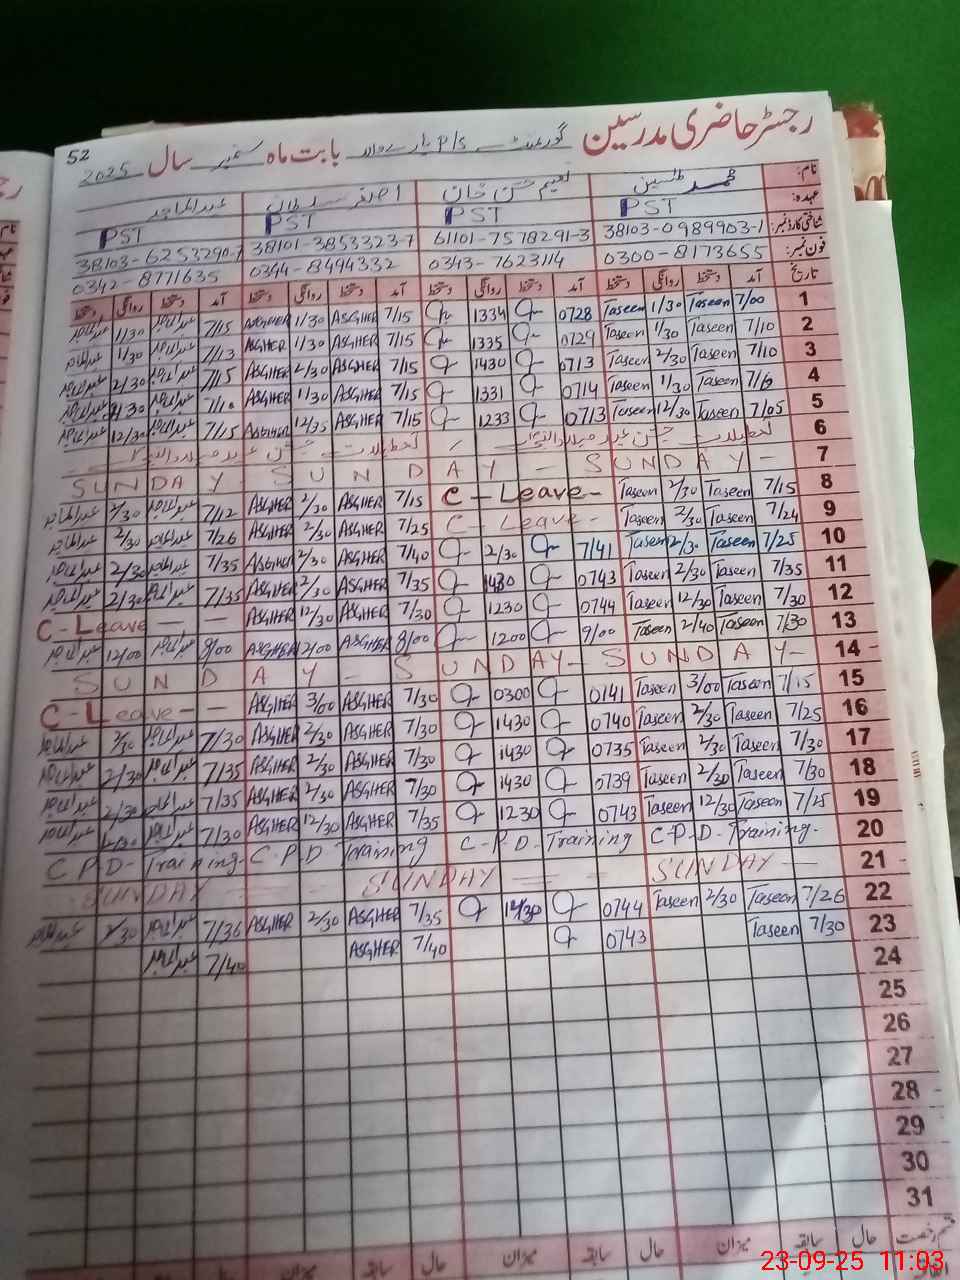 52
رجسٹر حاضری مدرسین گورنمنٹ P/S بابت ماہ ستمبر سال 2025
نام: محمد تحسین نعیم حسن خان اصغر سلطان عبدالماجد
عہدہ: PST PST PST PST
شناختی کارڈ نمبر: 38103-0989903-1 61101-7578291-3 38101-3853323-7 38103-6253290-7
فون نمبر: 0300-8173655 0343-7623114 0344-8494332 0342-8771635
تاریخ آمد دستخط روانگی دستخط آمد دستخط روانگی دستخط آمد دستخط روانگی دستخط آمد دستخط روانگی دستخط
1 7/00 Taseen 1/30 Taseen 0728 1334 7/15 ASGHER 1/30 ASGHER 7/15 عبدالماجد 1/30 عبدالماجد
2 7/10 Taseen 1/30 Taseen 0729 1335 7/15 ASGHER 1/30 ASGHER 7/13 عبدالماجد 1/30 عبدالماجد
3 7/10 Taseen 2/30 Taseen 0713 1430 7/15 ASGHER 2/30 ASGHER 7/15 عبدالماجد 2/30 عبدالماجد
4 Taseen 1/30 Taseen 0714 1331 7/15 ASGHER 1/30 ASGHER عبدالماجد عبدالماجد
5 7/05 Taseen 12/30 Taseen 0713 1233 7/15 ASGHER 12/35 ASGHER 7/15 عبدالماجد 12/30 عبدالماجد
6 تعطیلات جشن عید میلادالنبی تعطیلات جشن عید میلادالنبی
7 SUNDAY - SUNDAY - SUNDAY -
8 7/15 Taseen 2/30 Taseen C-Leave- 7/15 ASGHER 2/30 ASGHER 7/12 عبدالماجد 2/30 عبدالماجد
9 7/24 Taseen 2/30 Taseen C-Leave- 7/25 ASGHER 2/30 ASGHER 7/26 عبدالماجد 2/30 عبدالماجد
10 7/25 Taseen 2/30 Taseen 7/41 2/30 7/40 ASGHER 2/30 ASGHER 7/35 عبدالماجد 2/30 عبدالماجد
11 7/35 Taseen 2/30 Taseen 0743 1430 7/35 ASGHER 2/30 ASGHER 7/35 عبدالماجد 2/30 عبدالماجد
12 7/30 Taseen 12/30 Taseen 0744 1230 7/30 ASGHER 12/30 ASGHER C-Leave - -
13 7/30 Taseen 2/40 Taseen 9/00 1200 8/00 ASGHER 12/00 ASGHER 8/00 عبدالماجد 12/00 عبدالماجد
14 SUNDAY - SUNDAY - SUNDAY -
15 7/15 Taseen 3/00 Taseen 0141 0300 7/30 ASGHER 3/00 ASGHER C-Leave - -
16 7/25 Taseen 2/30 Taseen 0740 1430 7/30 ASGHER 2/30 ASGHER 7/30 عبدالماجد 2/30 عبدالماجد
17 7/30 Taseen 2/30 Taseen 0735 1430 7/30 ASGHER 2/30 ASGHER 7/35 عبدالماجد 2/30 عبدالماجد
18 7/30 Taseen 2/30 Taseen 0739 1430 7/30 ASGHER 2/30 ASGHER 7/35 عبدالماجد 2/30 عبدالماجد
19 7/25 Taseen 12/30 Taseen 0743 1230 7/35 ASGHER 12/30 ASGHER 7/30 عبدالماجد عبدالماجد
20 C.P.D-Training- C.P.D Training C-P-D-Training C.P.D-Training-
21 SUNDAY SUNDAY SUNDAY
22 7/26 Taseen 2/30 Taseen 0744 7/35 ASGHER 2/30 ASGHER 7/36 عبدالماجد 2/30 عبدالماجد
23 7/30 Taseen 0743 7/40 ASGHER 7/40 عبدالماجد
24
25
26
27
28
29
30
31
قسم رخصت حال سابقہ میزان حال سابقہ میزان حال سابقہ میزان
23-09-25 11:03